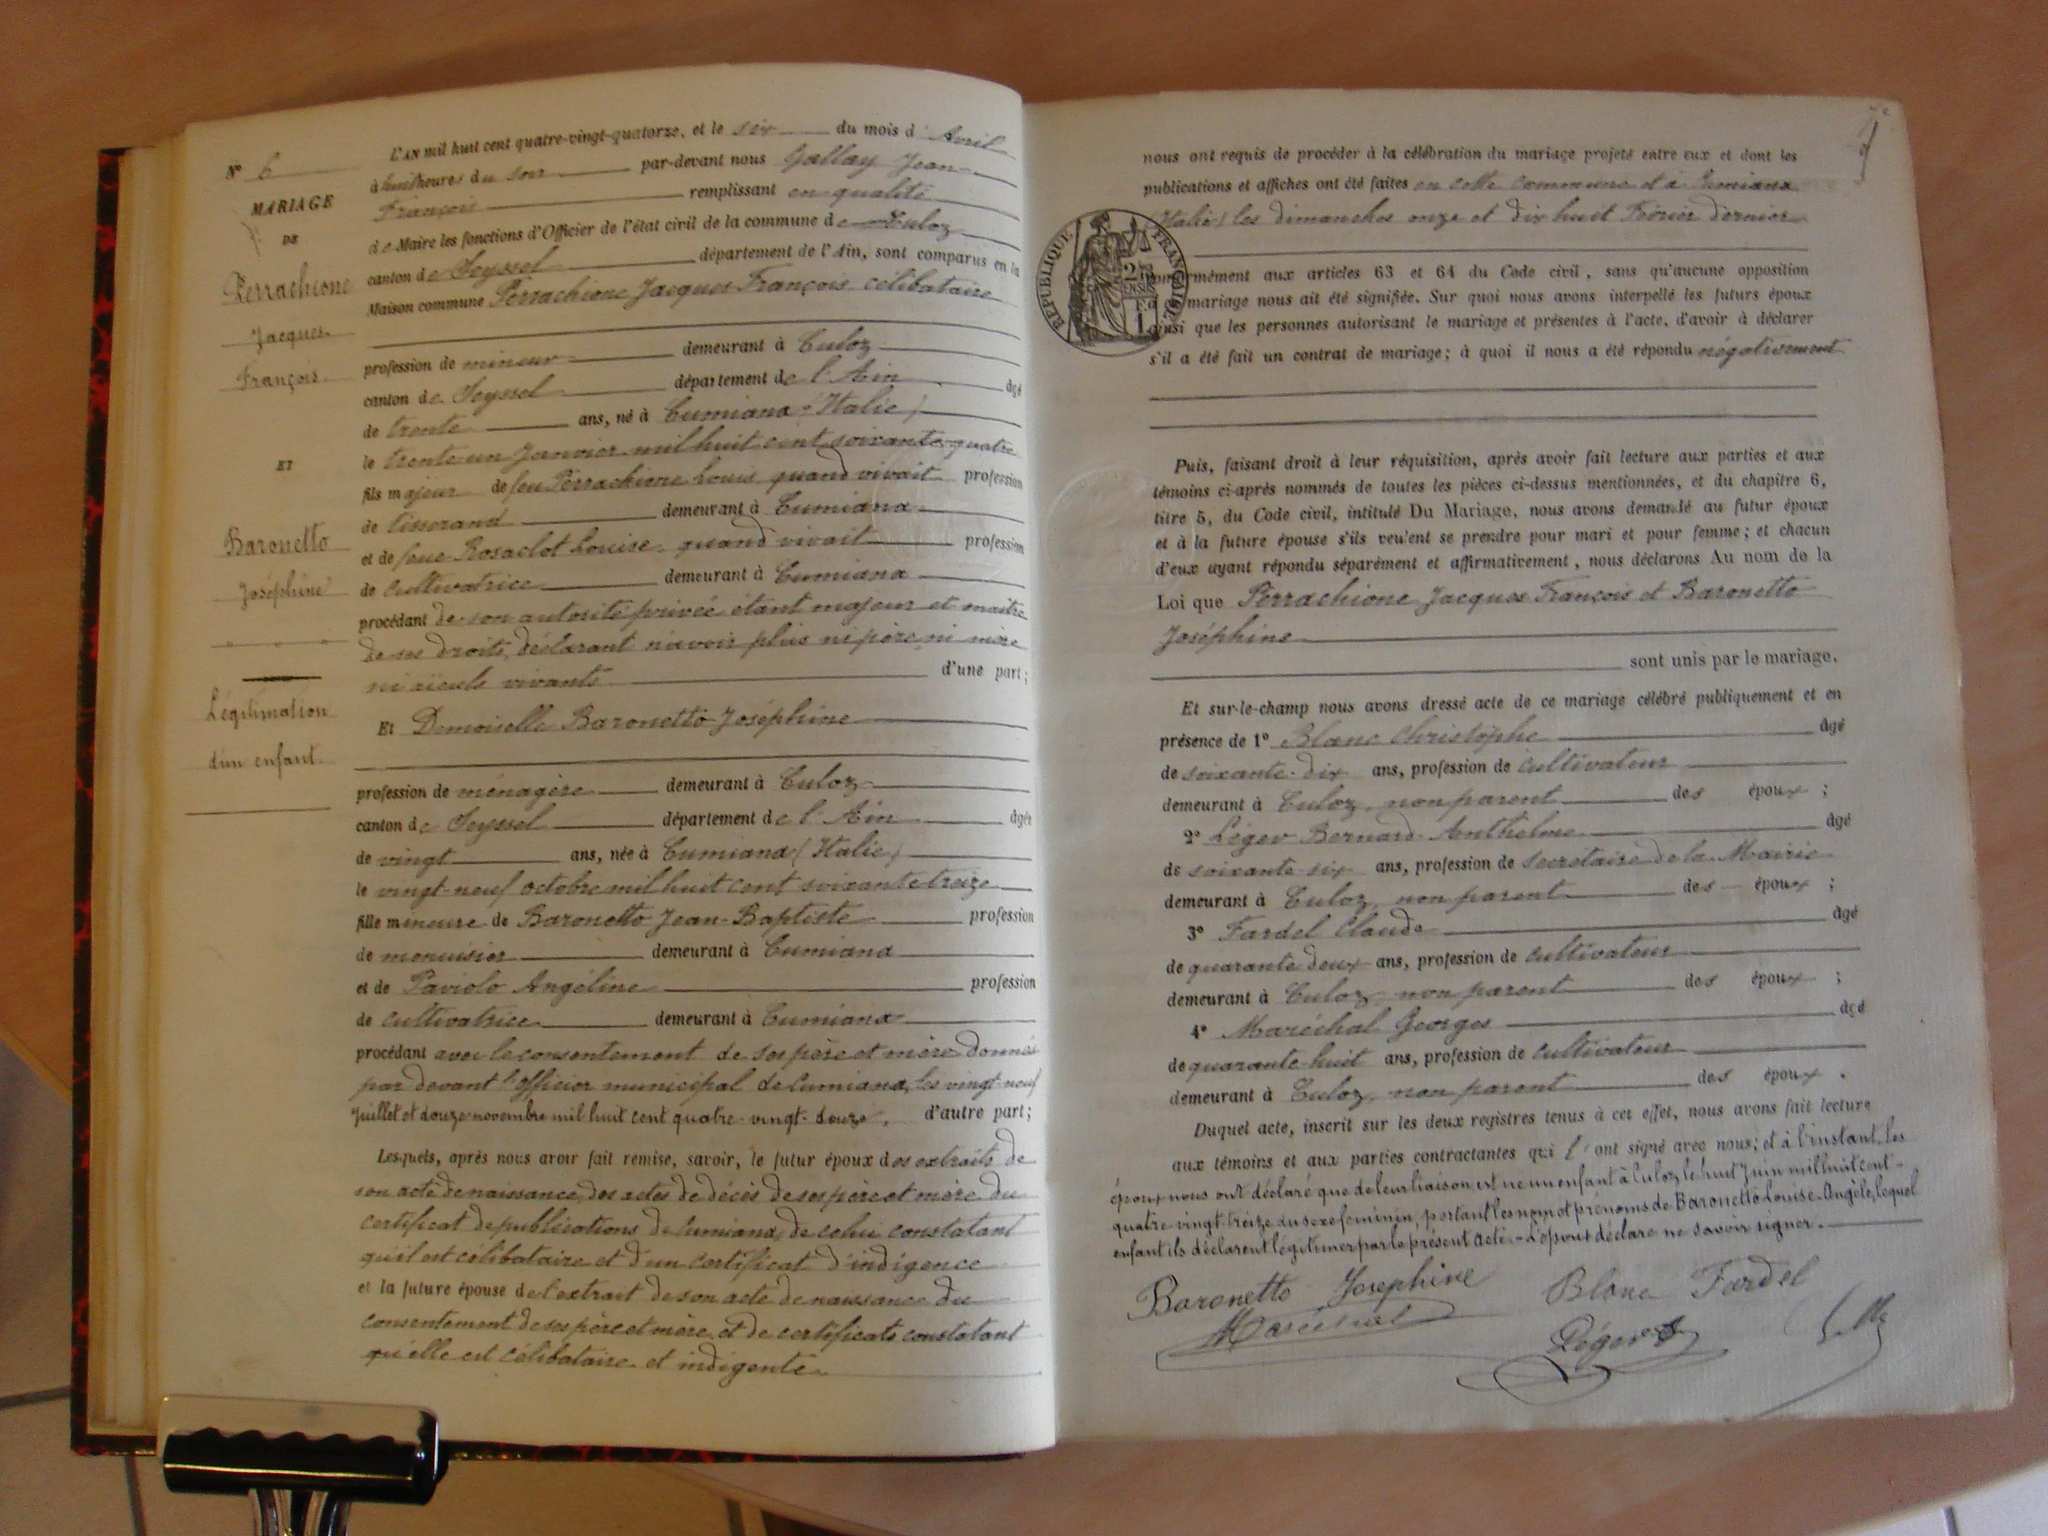 N° 6
MARIAGE
DE
Perrachione
Jacques
François
ET
Baronetto
Joséphine
Légitimation
d'un enfant.
L'AN mil huit cent quatre-vingt-quatorze, et le six du mois d'Avril
à huit heures du soir par-devant nous Gallay Jean-
François remplissant en qualité
de Maire les fonctions d'Officier de l'état civil de la commune de Culoz
canton de Seyssel département de l'Ain, sont comparus en la
Maison commune Perrachione Jacques François célibataire
profession de mineur demeurant à Culoz
canton de Seyssel département de l'Ain âgé
de trente ans, né à Cumiana (Italie)
le trente un Janvier mil huit cent soixante-quatre
fils majeur de feu Perrachione Louis quand vivait profession
de tisserand demeurant à Cumiana
et de feue Rosaclot Louise quand vivait profession
de cultivatrice demeurant à Cumiana
procédant de son autorité privée étant majeur et maître
de ses droits, déclarant n'avoir plus ni père ni mère
ni aïeuls vivants d'une part;
Et Demoiselle Baronetto Joséphine
profession de ménagère demeurant à Culoz
canton de Seyssel département de l'Ain âgée
de vingt ans, née à Cumiana (Italie)
le vingt-neuf octobre mil huit cent soixante treize
fille mineure de Baronetto Jean-Baptiste profession
de menuisier demeurant à Cumiana
et de Paviolo Angéline profession
de cultivatrice demeurant à Cumiana
procédant avec le consentement de ses père et mère donnés
par devant l'officier municipal de Cumiana, les vingt-neuf
Juillet et douze novembre mil huit cent quatre-vingt-douze, d'autre part;
Lesquels, après nous avoir fait remise, savoir, le futur époux des extraits de
son acte de naissance, des actes de décès de ses père et mère du
certificat de publications de Cumiana, de celui constatant
qu'il est célibataire et d'un certificat d'indigence
et la future épouse de l'extrait de son acte de naissance du
consentement de ses père et mère et de certificats constatant
qu'elle est célibataire et indigente
nous ont requis de procéder à la célébration du mariage projeté entre eux et dont les
publications et affiches ont été faites en cette commune et à Cumiana
(Italie) les dimanches onze et dix huit Février dernier
RÉPUBLIQUE FRANÇAISE
conformément aux articles 63 et 64 du Code civil, sans qu'aucune opposition
mariage nous ait été signifiée. Sur quoi nous avons interpellé les futurs époux
ainsi que les personnes autorisant le mariage et présentes à l'acte, d'avoir à déclarer
s'il a été fait un contrat de mariage; à quoi il nous a été répondu négativement
Puis, faisant droit à leur réquisition, après avoir fait lecture aux parties et aux
témoins ci-après nommés de toutes les pièces ci-dessus mentionnées, et du chapitre 6,
titre 5, du Code civil, intitulé Du Mariage, nous avons demandé au futur époux
et à la future épouse s'ils veulent se prendre pour mari et pour femme; et chacun
d'eux ayant répondu séparément et affirmativement, nous déclarons Au nom de la
Loi que Perrachione Jacques François et Baronetto
Joséphine
sont unis par le mariage.
Et sur-le-champ nous avons dressé acte de ce mariage célébré publiquement et en
présence de 1° Blanc Christophe âgé
de soixante-dix ans, profession de cultivateur
demeurant à Culoz, non parent des époux;
2° Léger Bernard Anthelme âgé
de soixante-six ans, profession de secrétaire de la Mairie
demeurant à Culoz, non parent des époux;
3° Fardel Claude âgé
de quarante deux ans, profession de cultivateur
demeurant à Culoz, non parent des époux;
4° Maréchal Georges âgé
de quarante-huit ans, profession de cultivateur
demeurant à Culoz, non parent des époux.
Duquel acte, inscrit sur les deux registres tenus à cet effet, nous avons fait lecture
aux témoins et aux parties contractantes qui l'ont signé avec nous; et à l'instant, les
époux nous ont déclaré que de leur liaison est né un enfant à Culoz, le huit Juin mil huit cent-
quatre-vingt-treize du sexe féminin, portant les nom et prénoms de Baronetto Louise-Angèle, lequel
enfant ils déclarent légitimer par le présent acte. - L'époux déclare ne savoir signer.
Baronetto Josephine Blanc Fardel
Maréchal Léger